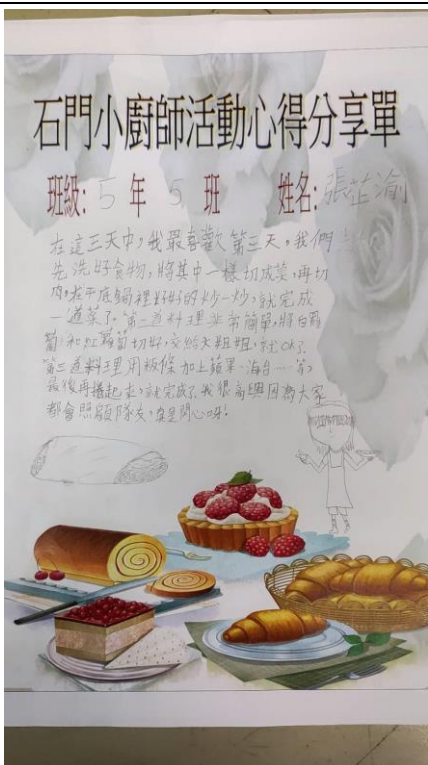 石門小廚師活動心得分享單
班級: 5 年 5 班 姓名: 張芷渝
在這三天中,我最喜歡第三天,我們
先洗好食物,將其中一樣切成
肉,在平底鍋裡好好的炒一炒,就完成
一道菜了。第二道料理非常簡單,將白蘿
蔔和紅蘿蔔切好,交給大姐姐,就OK了
第三道料理用粄條加上蘋果、海苔…等,
最後再捲起來,就完成了,我很高興因為大家
都會照顧隊友,真是開心呀!